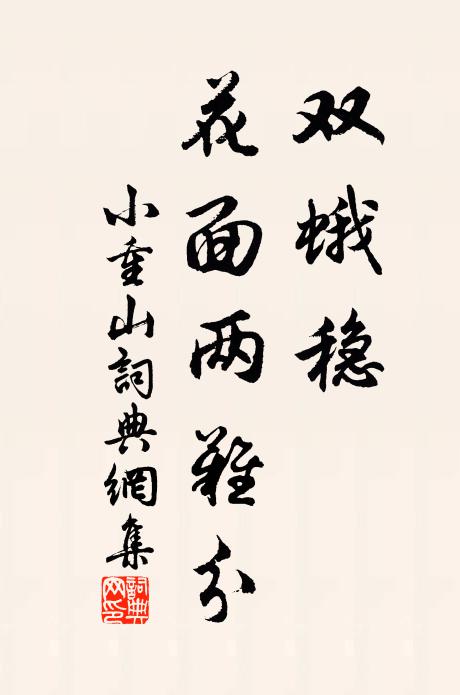 双蛾稳
花面两難分
小重山詞典網集
詞典網印